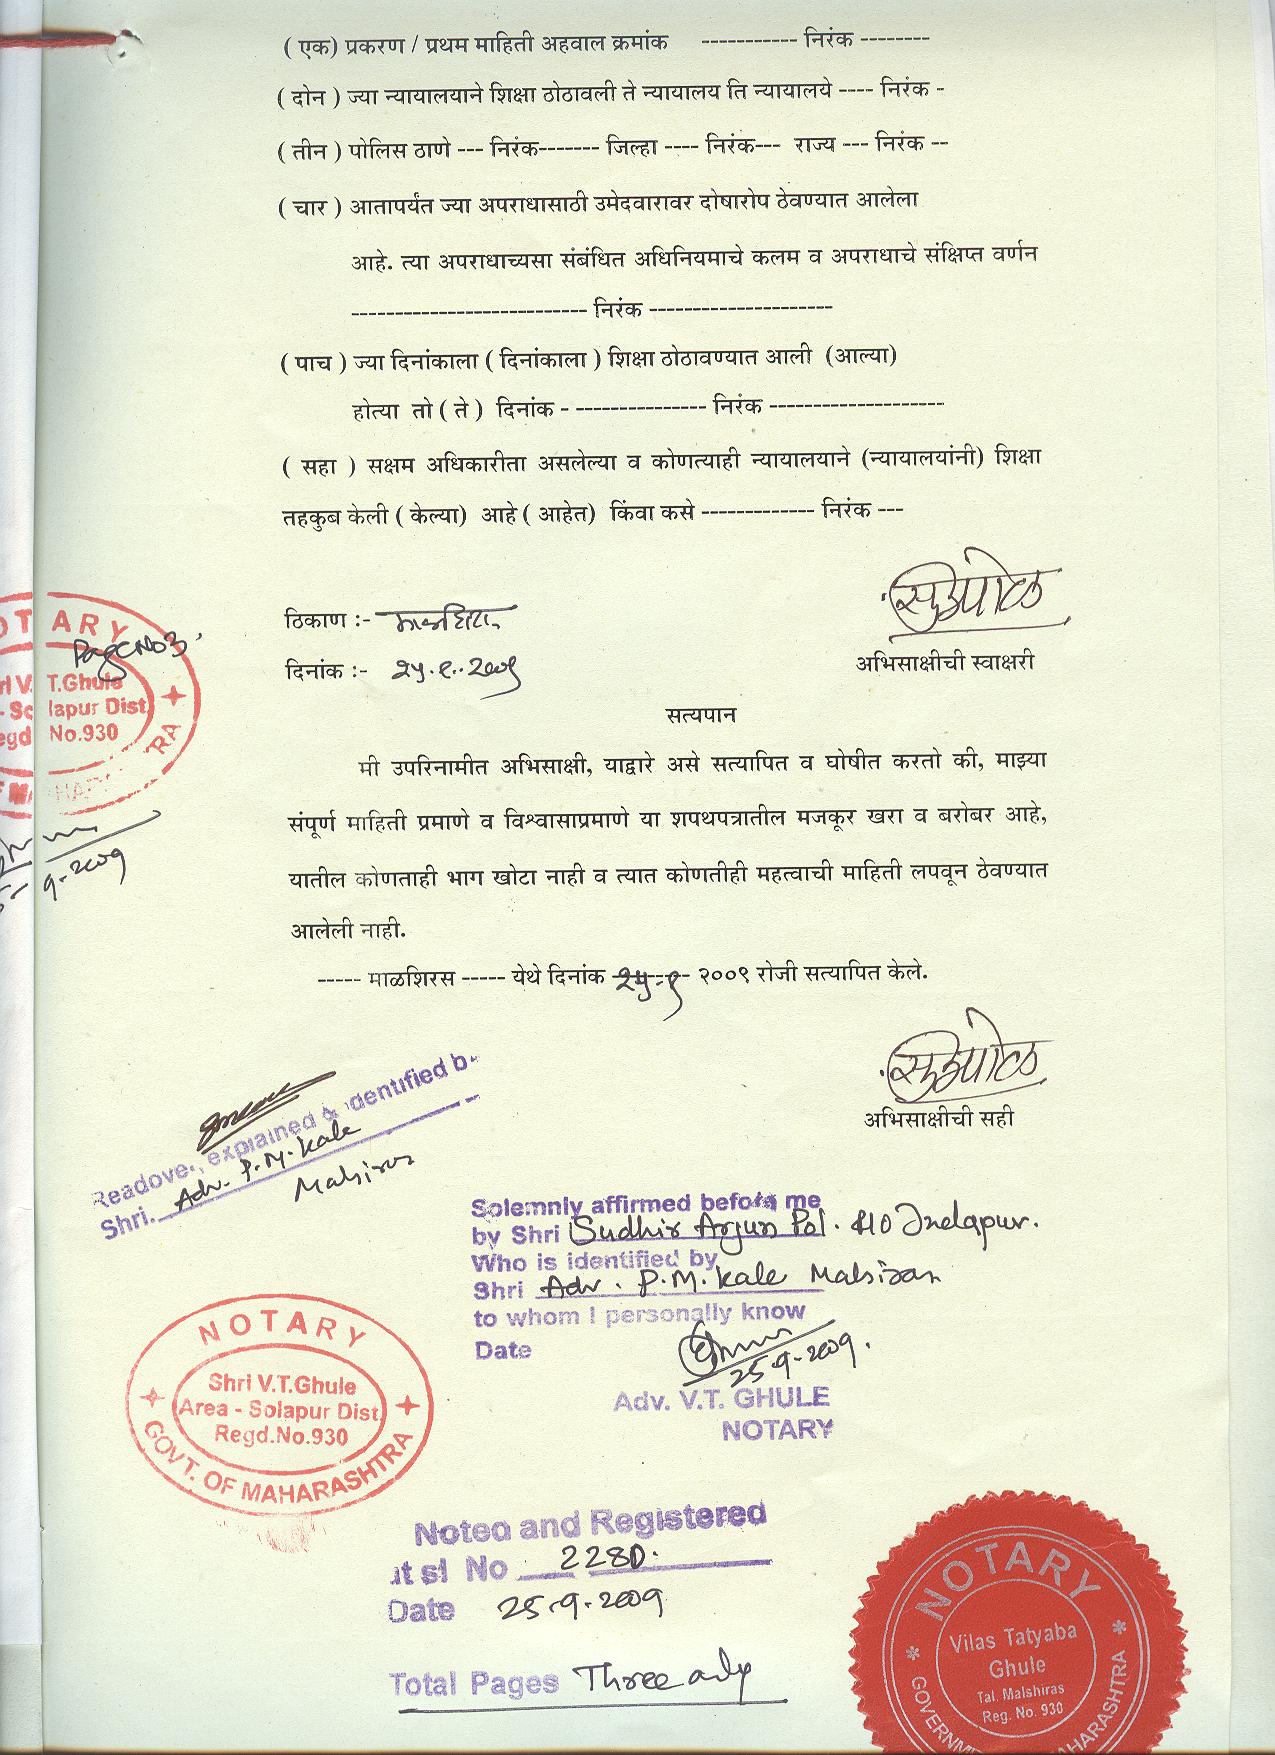 ( एक) प्रकरण / प्रथम माहिती अहवाल क्रमांक ----------- निरंक --------
( दोन ) ज्या न्यायालयाने शिक्षा ठोठावली ते न्यायालय ति न्यायालये ---- निरंक -
( तीन ) पोलिस ठाणे --- निरंक------- जिल्हा ---- निरंक--- राज्य --- निरंक --
( चार ) आतापर्यंत ज्या अपराधासाठी उमेदवारावर दोषारोप ठेवण्यात आलेला
आहे. त्या अपराधाच्यसा संबंधित अधिनियमाचे कलम व अपराधाचे संक्षिप्त वर्णन
--------------------------- निरंक ---------------------
( पाच ) ज्या दिनांकाला ( दिनांकाला ) शिक्षा ठोठावण्यात आली (आल्या)
होत्या तो ( ते ) दिनांक - --------------- निरंक --------------------
( सहा ) सक्षम अधिकारीता असलेल्या व कोणत्याही न्यायालयाने (न्यायालयांनी) शिक्षा
तहकुब केली ( केल्या) आहे ( आहेत) किंवा कसे ------------- निरंक ---
ठिकाण :-
दिनांक :- २५.९.२००९
अभिसाक्षीची स्वाक्षरी
NOTARY
Page No 3
T.Ghule
lapur Dist
No.930
9-2009
सत्यपान
मी उपरिनामीत अभिसाक्षी, याद्वारे असे सत्यापित व घोषीत करतो की, माझ्या
संपूर्ण माहिती प्रमाणे व विश्वासाप्रमाणे या शपथपत्रातील मजकूर खरा व बरोबर आहे,
यातील कोणताही भाग खोटा नाही व त्यात कोणतीही महत्वाची माहिती लपवून ठेवण्यात
आलेली नाही.
----- माळशिरस ----- येथे दिनांक २५-९ २००९ रोजी सत्यापित केले.
अभिसाक्षीची सही
Readover, explained & identified by
Shri. Adv. P.M. Kale
Malsiras
Solemnly affirmed before me
by Shri Sudhir Arjun Pol. R/O Indapur.
Who is identified by
Shri Adv. P.M. Kale Malsiras
to whom I personally know
Date 25-9-2009.
Adv. V.T. GHULE
NOTARY
NOTARY
Shri V.T.Ghule
Area - Solapur Dist.
Regd.No.930
GOVT. OF MAHARASHTRA
Noted and Registered
at sl No 2280.
Date 25-9-2009
Total Pages Three only
NOTARY
Vilas Tatyaba
Ghule
Tal. Malshiras
Reg. No. 930